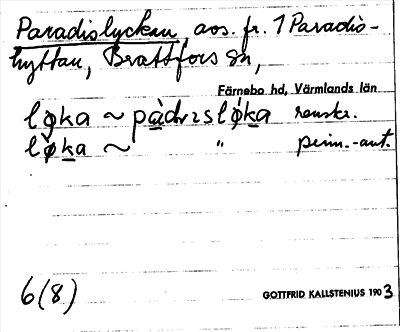 Paradislyckan, avs. fr. 1 Paradis-
hyttan, Brattfors sn,
Färnebo hd, Värmlands län
lø̀ka ~ pàdɩsløka renskr.
lø̀ka ~ " prim.-ant.
6(8)
GOTTFRID KALLSTENIUS 1903